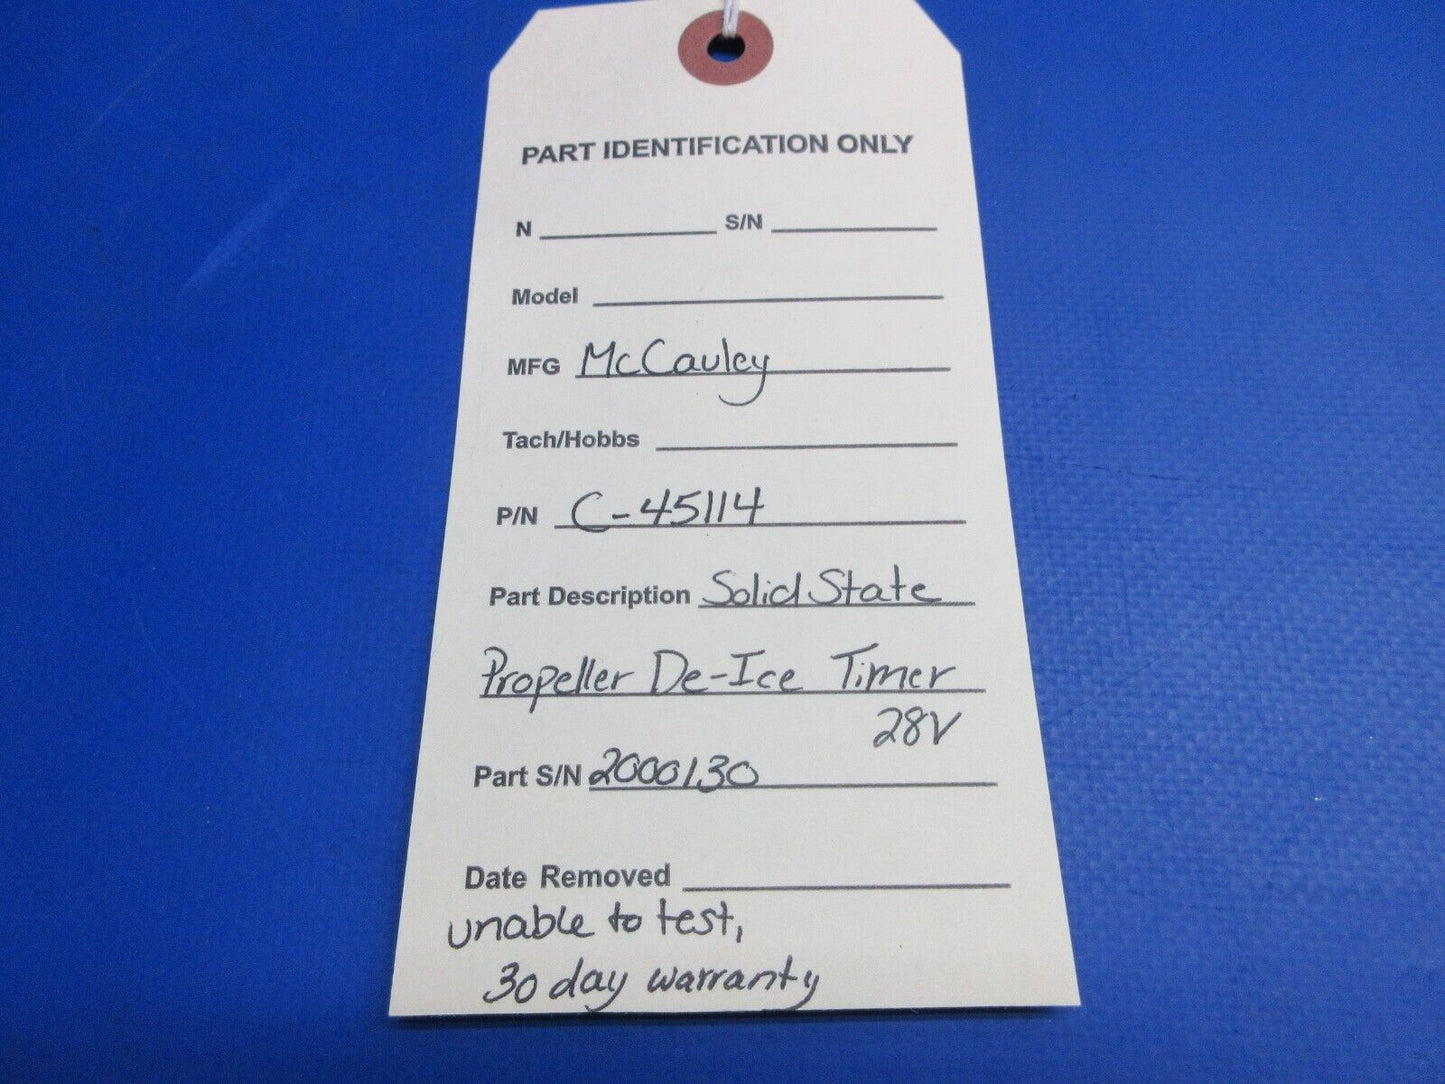 PART IDENTIFICATION ONLY
N S/N
Model
MFG McCauley
Tach/Hobbs
P/N C-45114
Part Description Solid State
Propeller De-Ice Timer
28V
Part S/N 2000130
Date Removed
unable to test,
30 day warranty